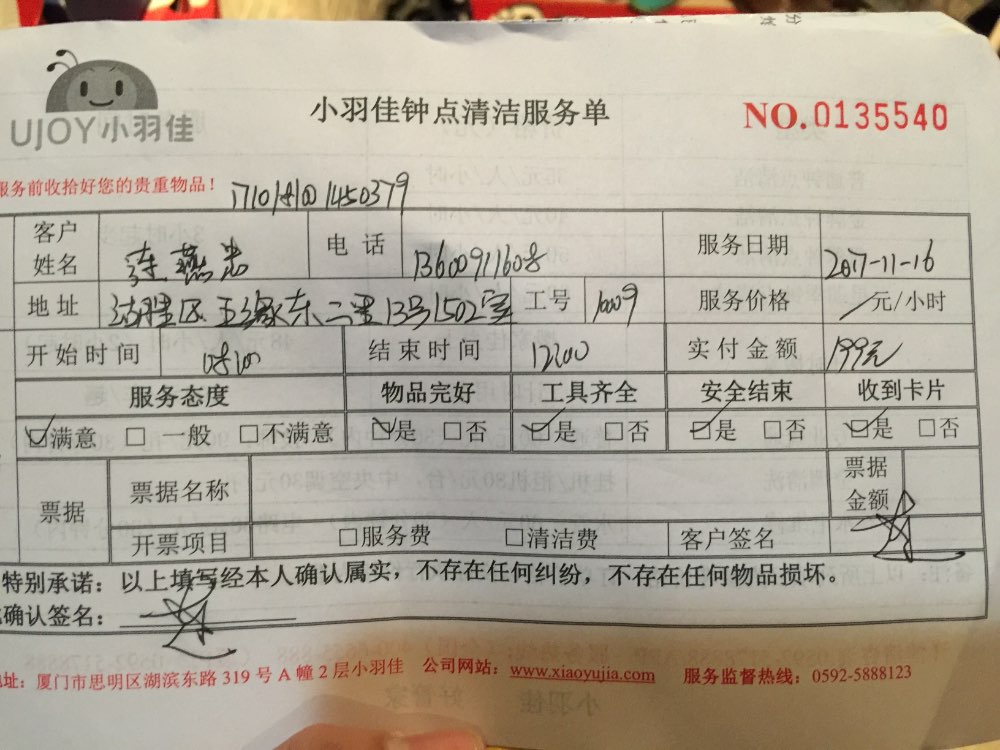 UJOY小羽佳
小羽佳钟点清洁服务单
NO.0135540
服务前收拾好您的贵重物品！
客户姓名 电话 13600911608 服务日期 2017-11-16
地址 湖里区五缘东二里13号1502室 工号 10009 服务价格 元/小时
开始时间 0800 结束时间 1200 实付金额 199元
服务态度 物品完好 工具齐全 安全结束 收到卡片
☑满意 □一般 □不满意 ☑是 □否 ☑是 □否 ☑是 □否 ☑是 □否
票据 票据名称 票据金额
开票项目 □服务费 □清洁费 客户签名
特别承诺：以上填写经本人确认属实，不存在任何纠纷，不存在任何物品损坏。
确认签名：
地址：厦门市思明区湖滨东路 319 号 A 幢 2 层小羽佳 公司网站：www.xiaoyujia.com 服务监督热线：0592-5888123